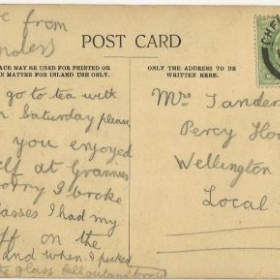 e from
anders
POST CARD
ACE MAY BE USED FOR PRINTED OR
EN MATTER FOR INLAND USE ONLY.
ONLY THE ADDRESS TO BE
WRITTEN HERE.
go to tea with
n Saturday please
you enjoyed
lf at Grannies
orry I broke
lasses I had my
ff on the
and when I picked
glass fell out and broke
Mrs Sander
Percy Ho
Wellington
Local
CHE